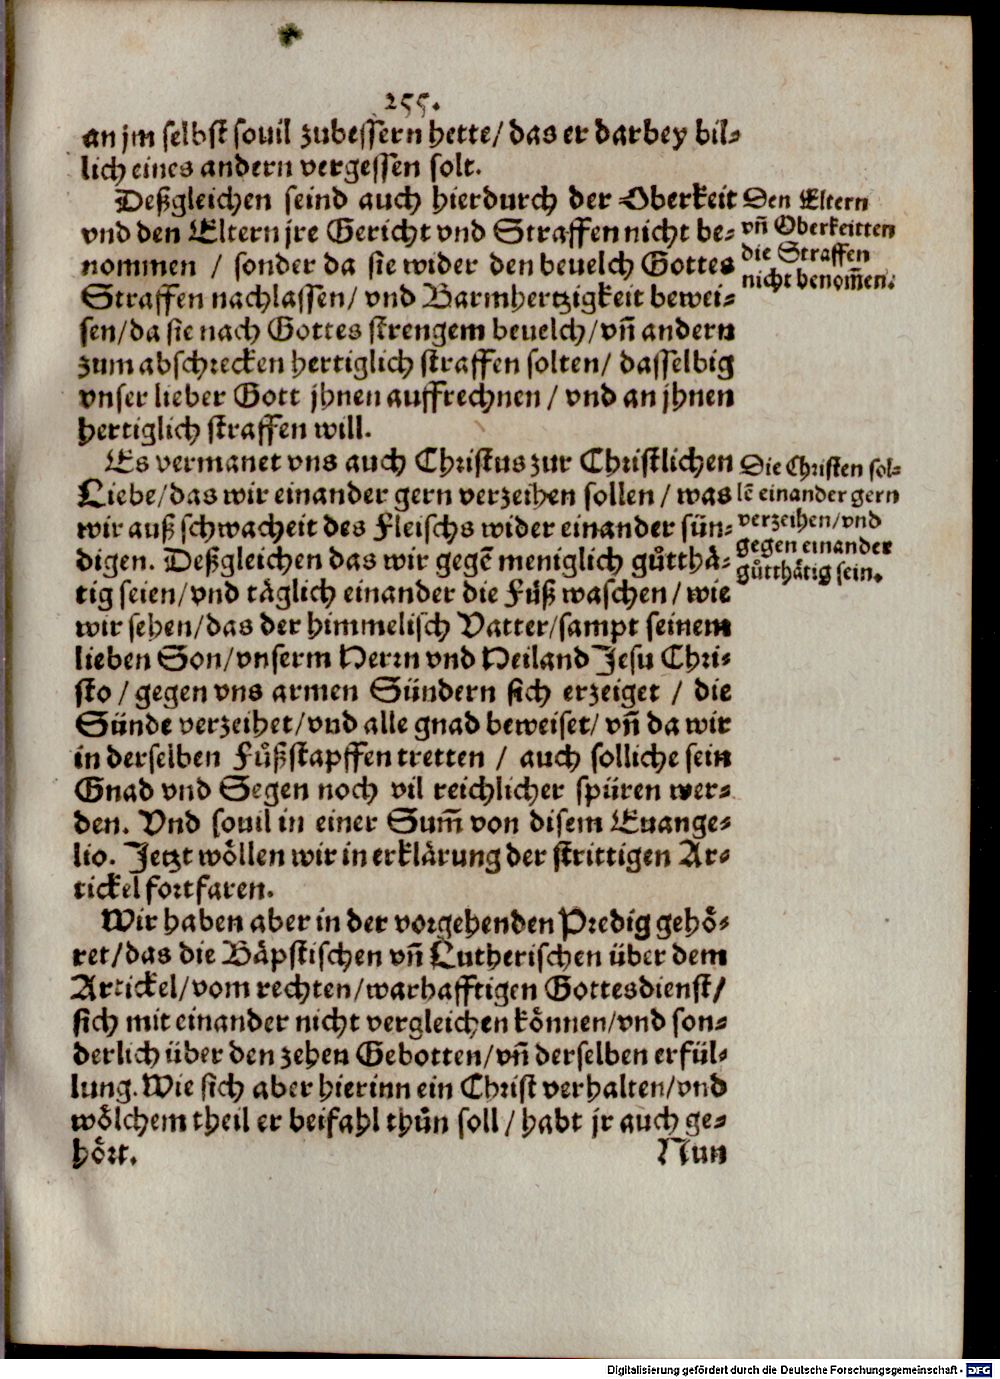 255.
an jm selbst souil zubessern hette/ das er darbey bil-
lich eines andern vergessen solt.
Deßgleichen seind auch hierdurch der Oberkeit
vnd den Eltern jre Gericht vnd Straffen nicht be-
nommen / sonder da sie wider den beuelch Gottes
Straffen nachlassen/ vnd Barmhertzigkeit bewei-
sen/da sie nach Gottes strengem beuelch/vñ andern
zum abschrecken hertiglich straffen solten/ dasselbig
vnser lieber Gott jhnen auffrechnen / vnd an jhnen
hertiglich straffen will.
Den Eltern
vñ Oberkeitten
die Straffen
nicht benom̃en.
Es vermanet vns auch Christus zur Christlichen
Liebe/das wir einander gern verzeihen sollen / was
wir auß schwacheit des Fleischs wider einander sün-
digen. Deßgleichen das wir gegẽ meniglich gůtthä-
tig seien/vnd täglich einander die Fůß waschen/ wie
wir sehen/das der himmelisch Vatter/sampt seinem
lieben Son/vnserm Herrn vnd Heiland Jesu Chri-
sto / gegen vns armen Sündern sich erzeiget / die
Sünde verzeihet/vnd alle gnad beweiset/ vñ da wir
in derselben Fůßstapffen tretten / auch solliche sein
Gnad vnd Segen noch vil reichlicher spüren wer-
den. Vnd souil in einer Sum̃ von disem Euange-
lio. Jetzt wöllen wir in erklärung der strittigen Ar-
tickel fortfaren.
Die Christen sol-
lẽ einander gern
verzeihen/vnd
gegen einander
gůtthätig sein.
Wir haben aber in der vorgehenden Predig gehö-
ret/das die Bäpstischen vñ Lutherischen über dem
Artickel/vom rechten/warhafftigen Gottesdienst/
sich mit einander nicht vergleichen können/vnd son-
derlich über den zehen Gebotten/vñ derselben erfül-
lung. Wie sich aber hierinn ein Christ verhalten/vnd
wölchem theil er beifahl thůn soll / habt jr auch ge-
hört.
Nun
Digitalisierung gefördert durch die Deutsche Forschungsgemeinschaft - DFG